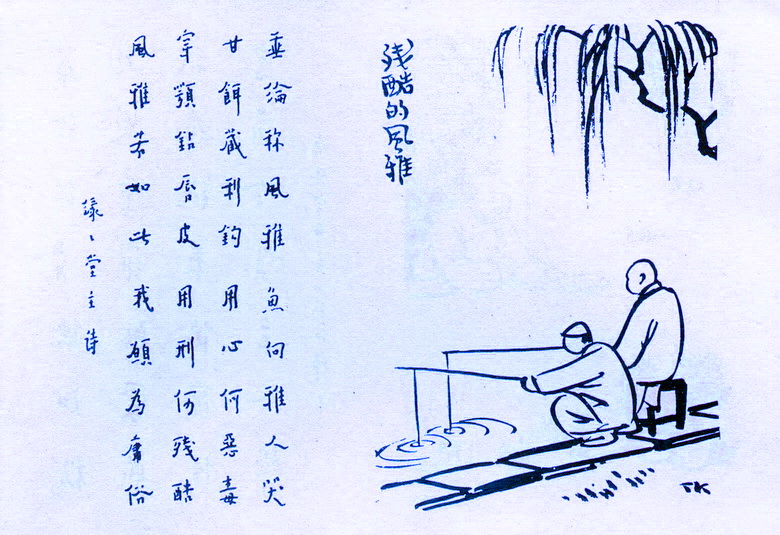 残酷的風雅
垂綸称風雅魚向雅人哭
甘餌藏利鈎用心何惡毒
穿顎鉆唇皮用刑何残酷
風雅若如此我願為庸俗
緣〻堂主詩
TK